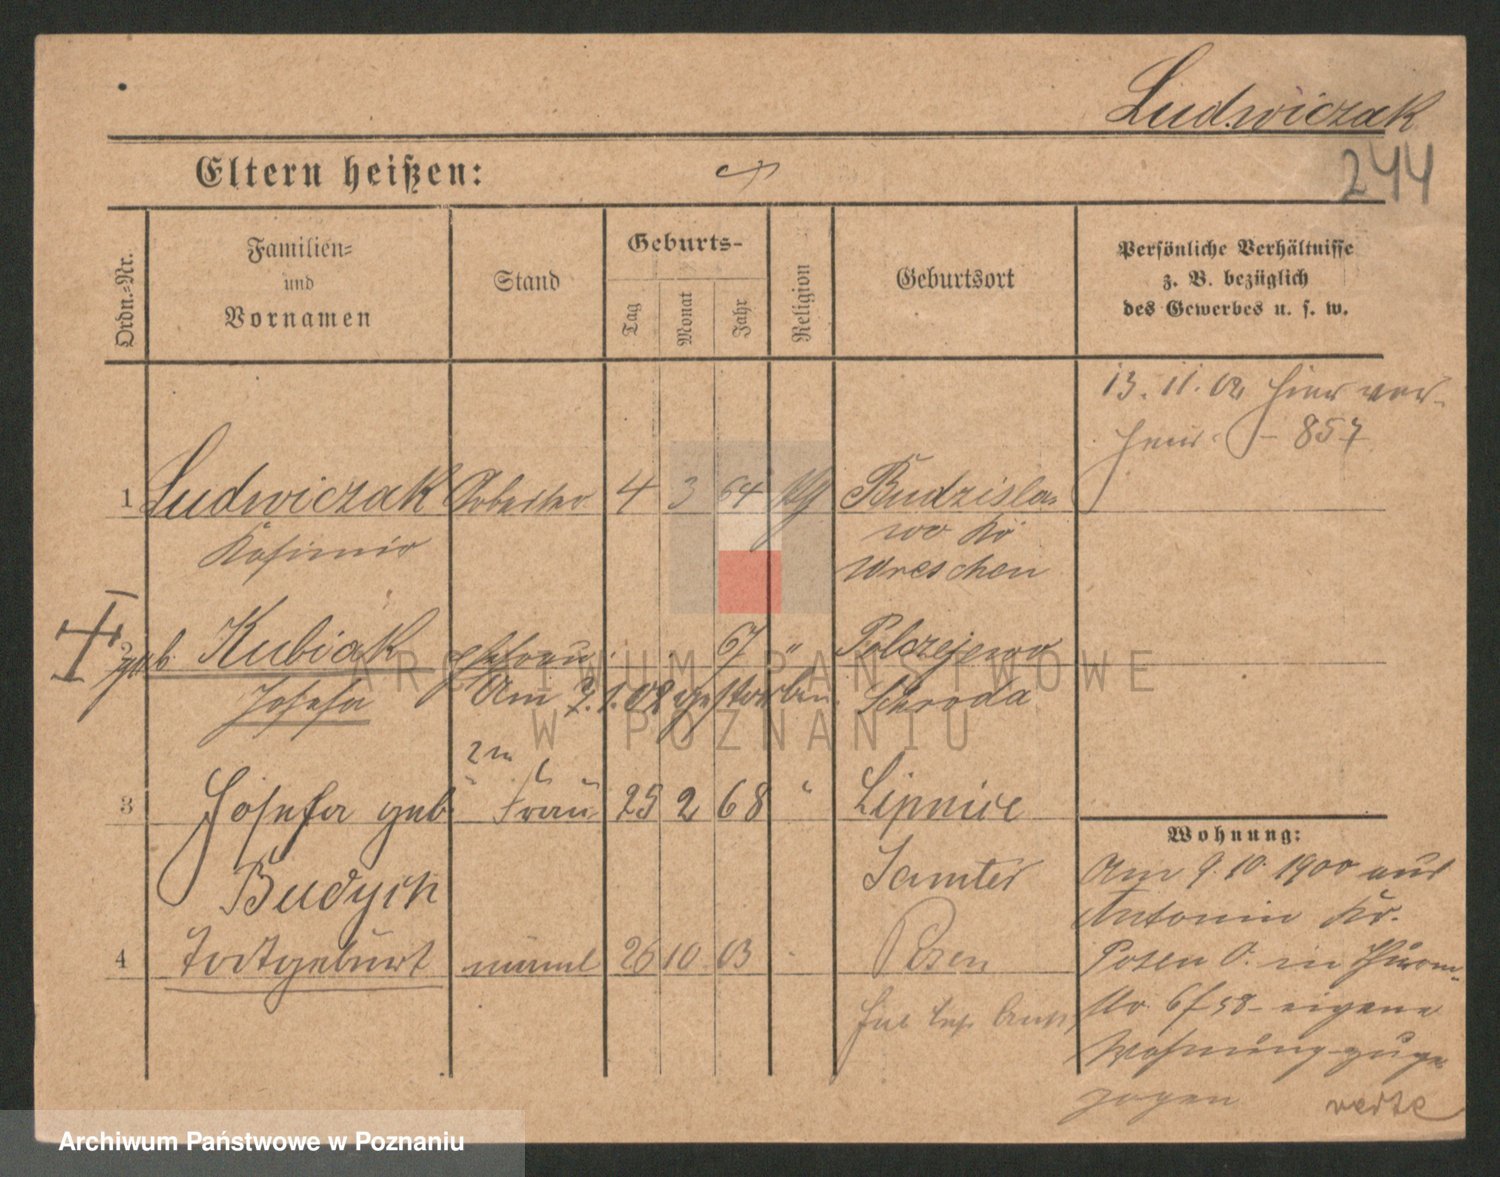 Ludwiczak
244
Eltern heißen:
Ordn.-Nr.
Familien-
und
Vornamen
Stand
Geburts-
Tag
Monat
Jahr
Religion
Geburtsort
Persönliche Verhältnisse
z. B. bezüglich
des Gewerbes u. s. w.
13. 11. 02 hier ver-
857
1 Ludwiczak Arbeiter 4 3 64 Budzisla-
Kasimir wo Kr
Wreschen
2 geb Kubiak Ehefrau 67 " Polazejewo
Josefa Am 7. 1. 02 gestorben Schroda
2te
3 Josefa geb Frau 25 2 68 " Lipnice
Budych Samter
4 Todtgeburt männl 26 10 03 Posen
Wohnung:
Am 9. 10. 1900 aus
Antonin Kr.
Posen O. in Thurm-
str. 6 eigene
Wohnung zuge
zogen
ARCHIWUM PAŃSTWOWE
W POZNANIU
Archiwum Państwowe w Poznaniu